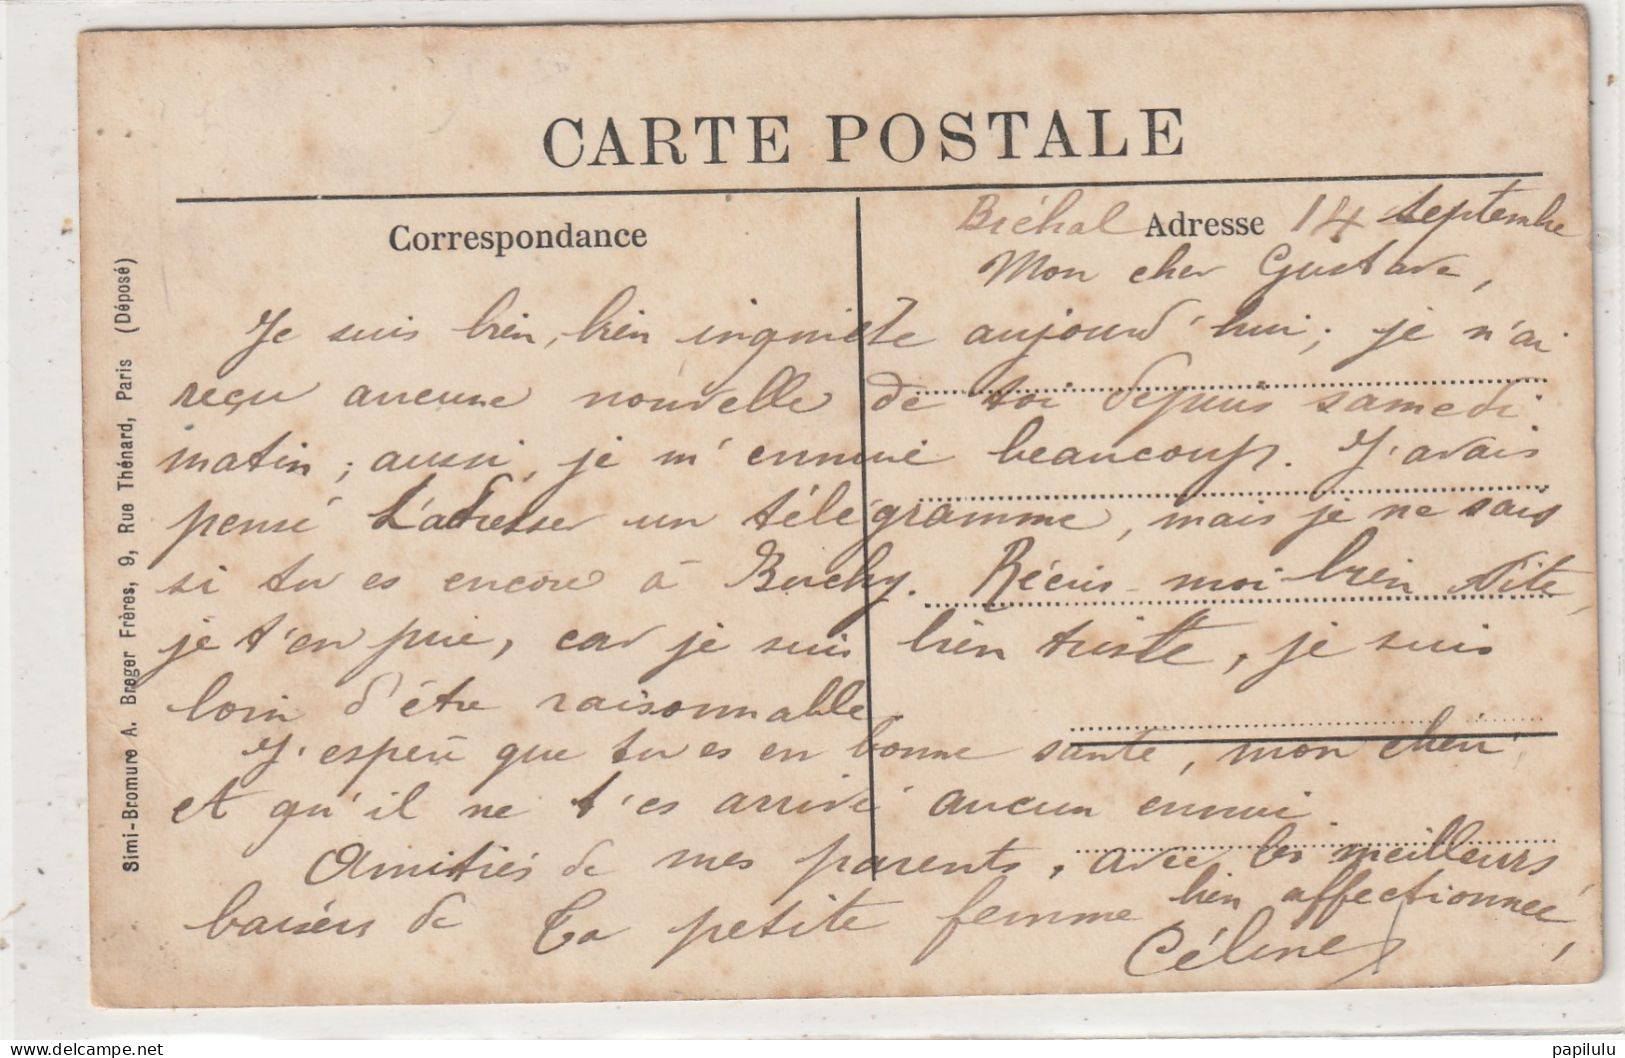 CARTE POSTALE
Correspondance
Adresse
Bréhal 14 septembre
Mon cher Gustave,
Je suis bien, bien inquiète aujourd'hui; je n'ai
reçu aucune nouvelle de toi depuis samedi
matin; aussi, je m'ennuie beaucoup. J'avais
pensé t'adresser un télégramme, mais je ne sais
si tu es encore à Buchy. Récris-moi bien vite,
je t'en prie, car je suis bien triste, je suis
loin d'être raisonnable.
J'espère que tu es en bonne santé, mon chéri
et qu'il ne t'es arrivé aucun ennui.
Amitiés de mes parents, avec les meilleurs
baisers de Ta petite femme bien affectionnée,
Céline
Simi-Bromure A. Breger Frères, 9, Rue Thénard, Paris (Déposé)
delcampe.net
papilulu